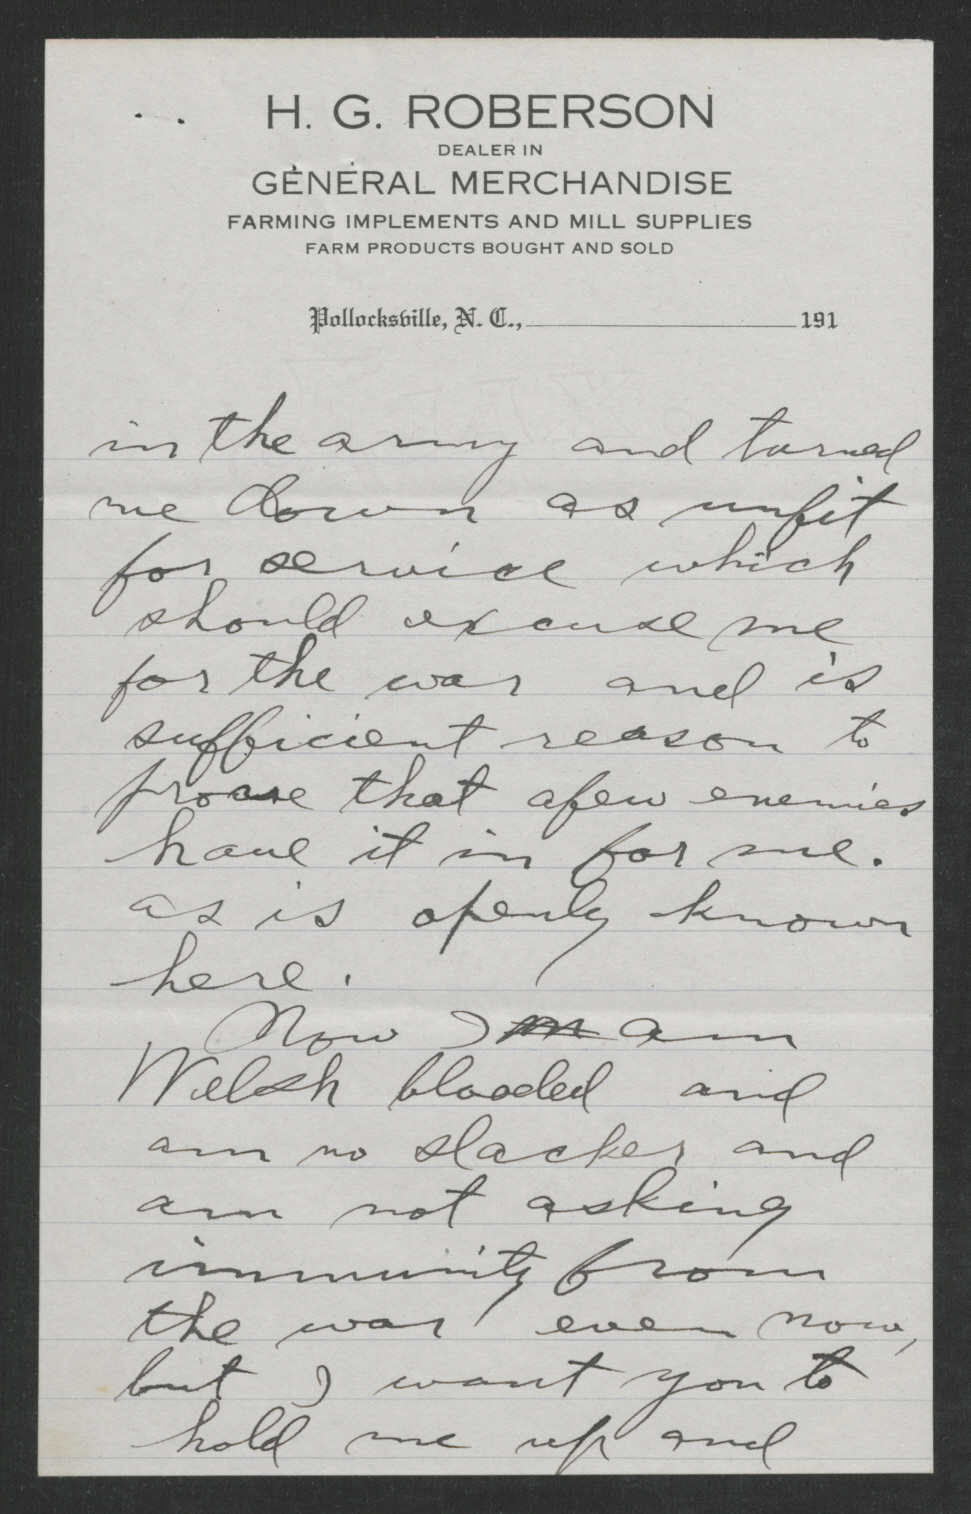 H. G. ROBERSON
DEALER IN
GENERAL MERCHANDISE
FARMING IMPLEMENTS AND MILL SUPPLIES
FARM PRODUCTS BOUGHT AND SOLD
Pollocksville, N. C., 191
in the army and turned
me down as unfit
for service which
should excuse me
for the war and is
sufficient reason to
prove that afew enemies
have it in for me.
as is openly known
here.
Now I am
Welsh blooded and
am no slacker and
am not asking
immunity from
the war even now,
but I want you to
hold me up and